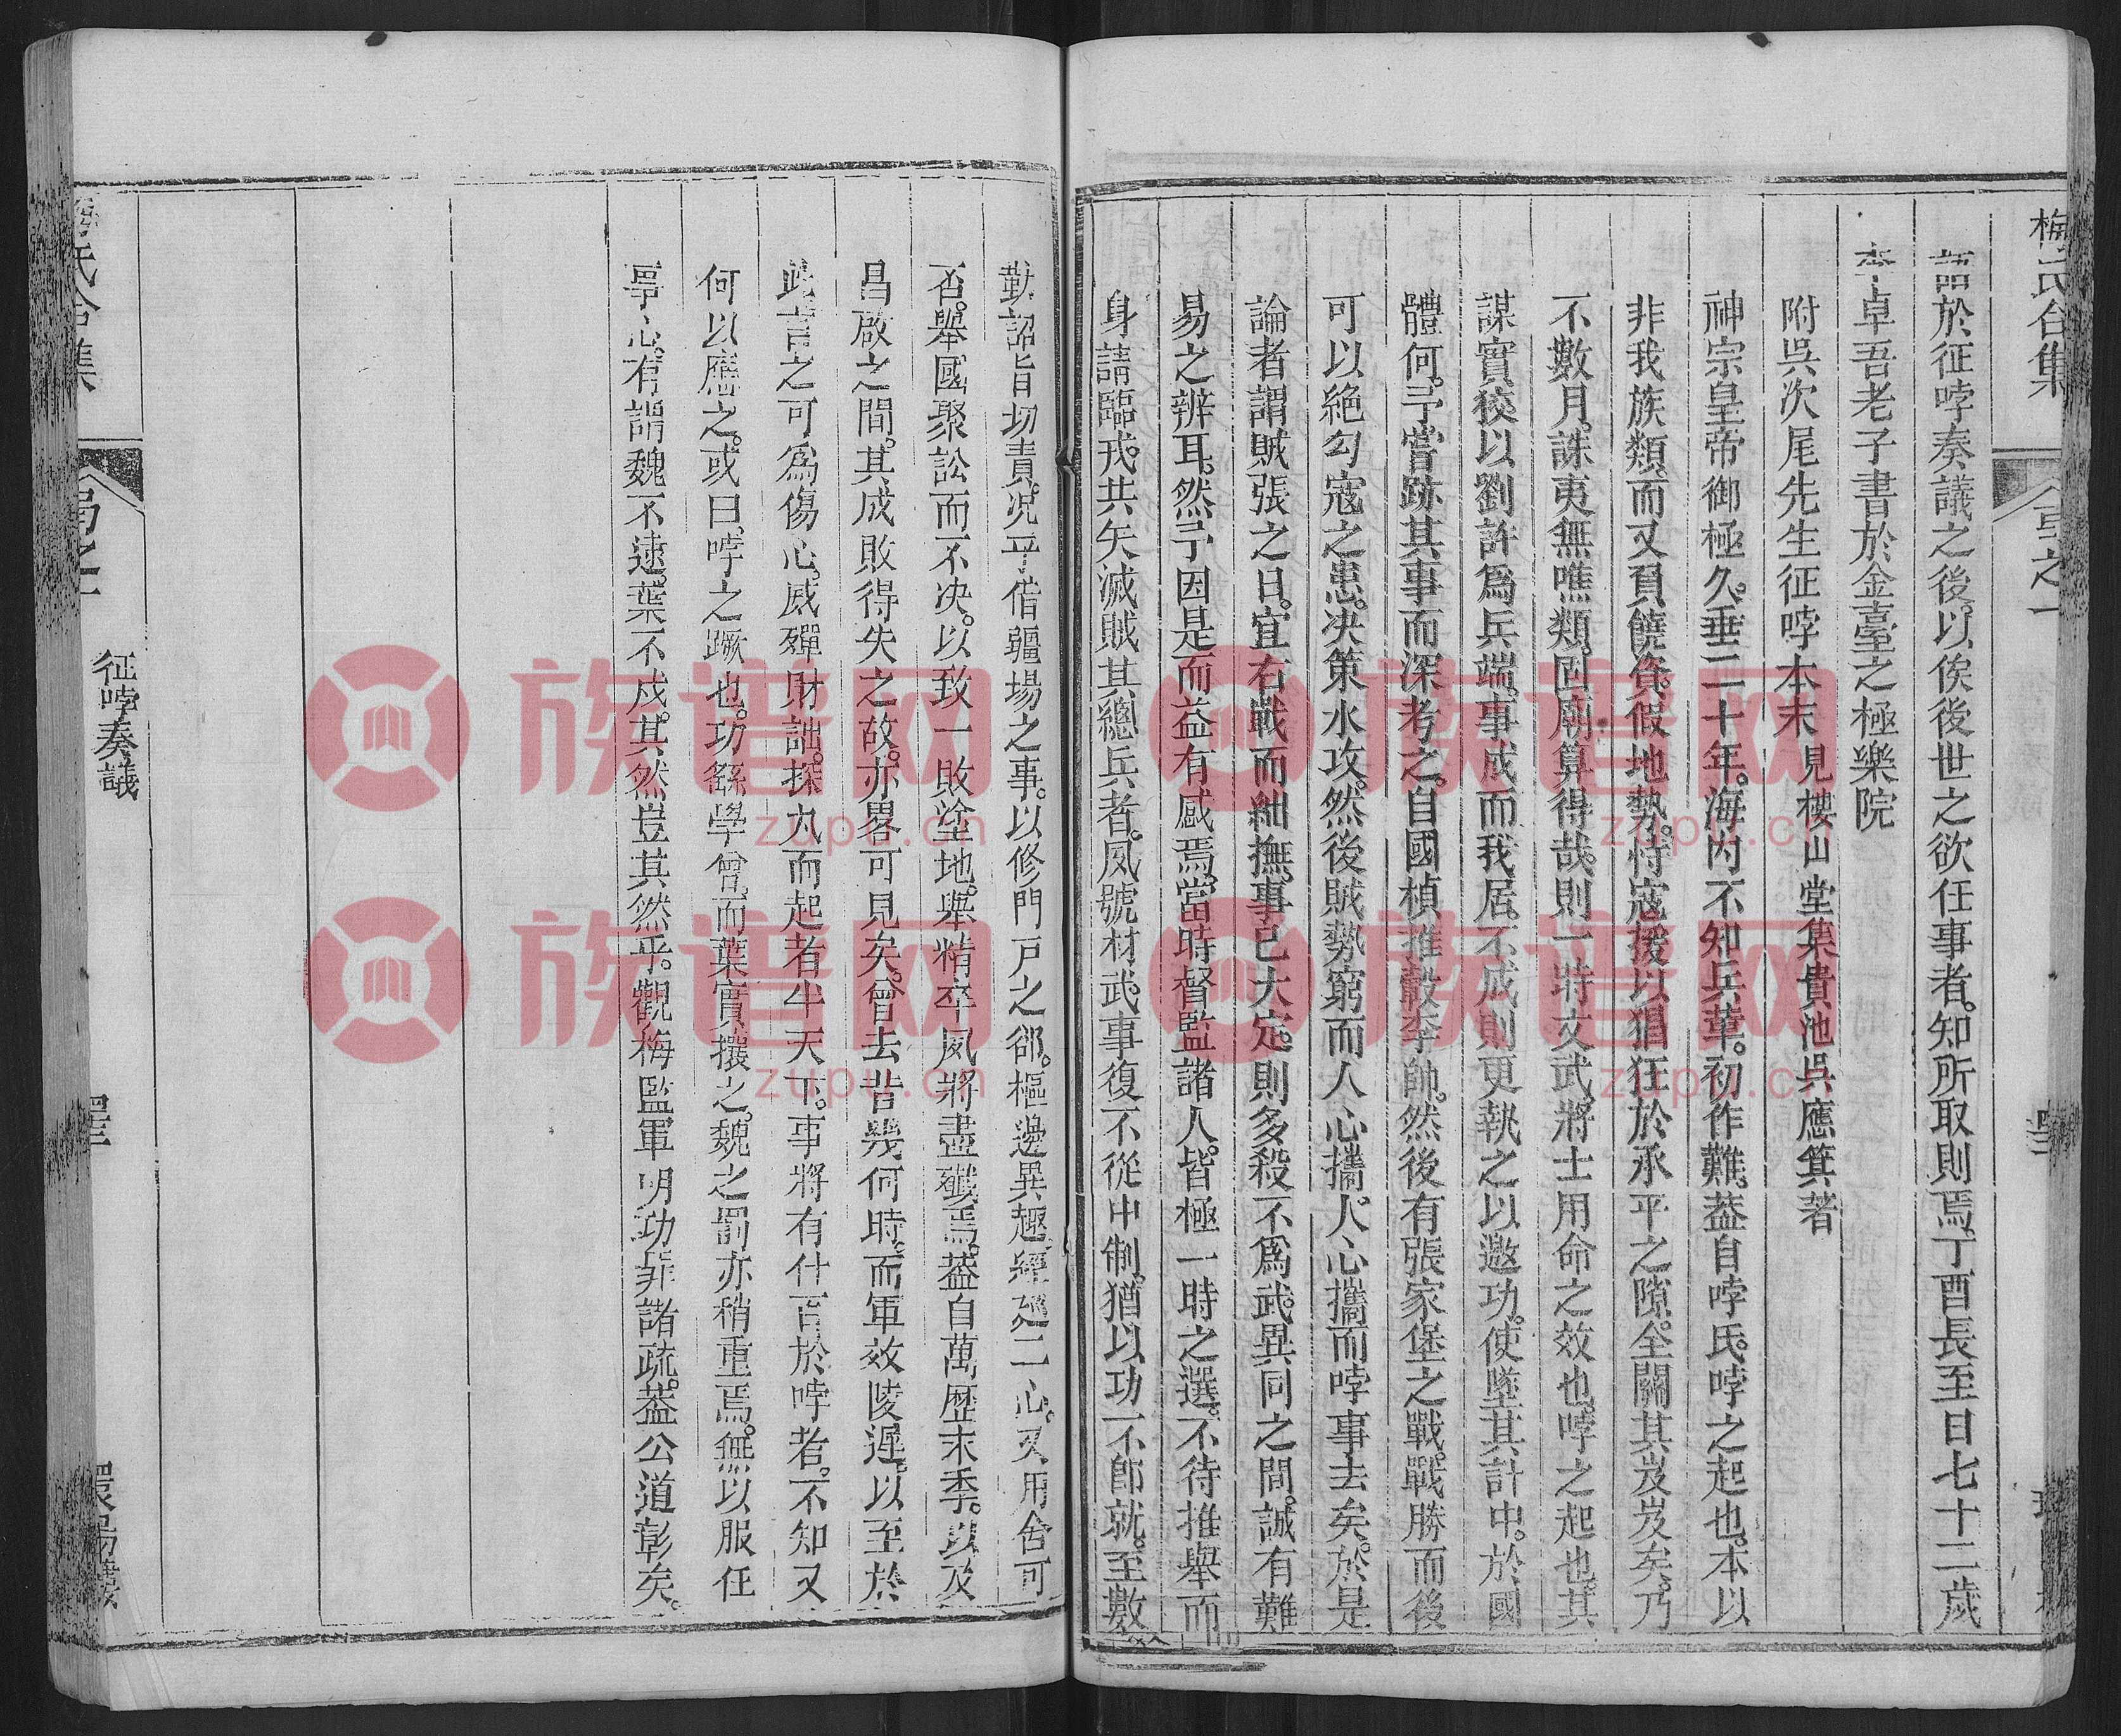 梅氏合集
語於征哱奏議之後。以俟後世之欲任事者。知所取則焉。丁酉長至日七十二歲
李卓吾老子書於金臺之極樂院
附吳次尾先生征哱本末見樓山堂集貴池吳應箕著
神宗皇帝御極久。垂二十年。海內不知兵革。初作難。葢自哱氏。哱之起也。本以
非我族類。而又負饒貲。假地勢。恃寇援。以猖狂於承平之隙。全關其岌岌矣。乃
不數月。誅夷無噍類。固廟算得哉。則一時文武將士用命之效也。哱之起也。其
謀實狡。以劉許為兵端。事成而我居。不成則更執之以邀功。使墮其計中。於國
體何。予嘗跡其事而深考之。自國楨推轂李帥。然後有張家堡之戰。戰勝而後
可以絕勾寇之患。決策水攻。然後賊勢窮而人心攜。人心攜而哱事去矣。於是
論者謂賊張之日。宜右戰而絀撫。事已大定。則多殺不為武。異同之間。誠有難
易之辨耳。然予因是而益有感焉。當時督監諸人。皆極一時之選。不待推舉而
身請臨戎。共矢滅賊。其總兵者。夙號材武。事復不從中制。猶以功不即就。至數
勤詔旨切責。況乎借疆場之事。以修門戸之郤。樞邊異趣。經廵二心。又用舍可
否。舉國聚訟而不決。以致一敗塗地。舉精卒夙將盡殲焉。葢自萬歷末季。以及
昌啟之間。其成敗得失之故。亦畧可見矣。曾去昔幾何時。而軍效陵遲。以至於
此。言之可為傷心。威殫財詘。探丸而起者半天下。事將有什百於哱者。不知又
何以應之。或曰。哱之蹶也。功繇學曾。而葉實攘之。魏之罰亦稍重焉。無以服任
事心。有謂魏不逮。葉不成。其然豈其然乎。觀梅監軍明功罪諸疏。葢公道彰矣。
征哱奏議